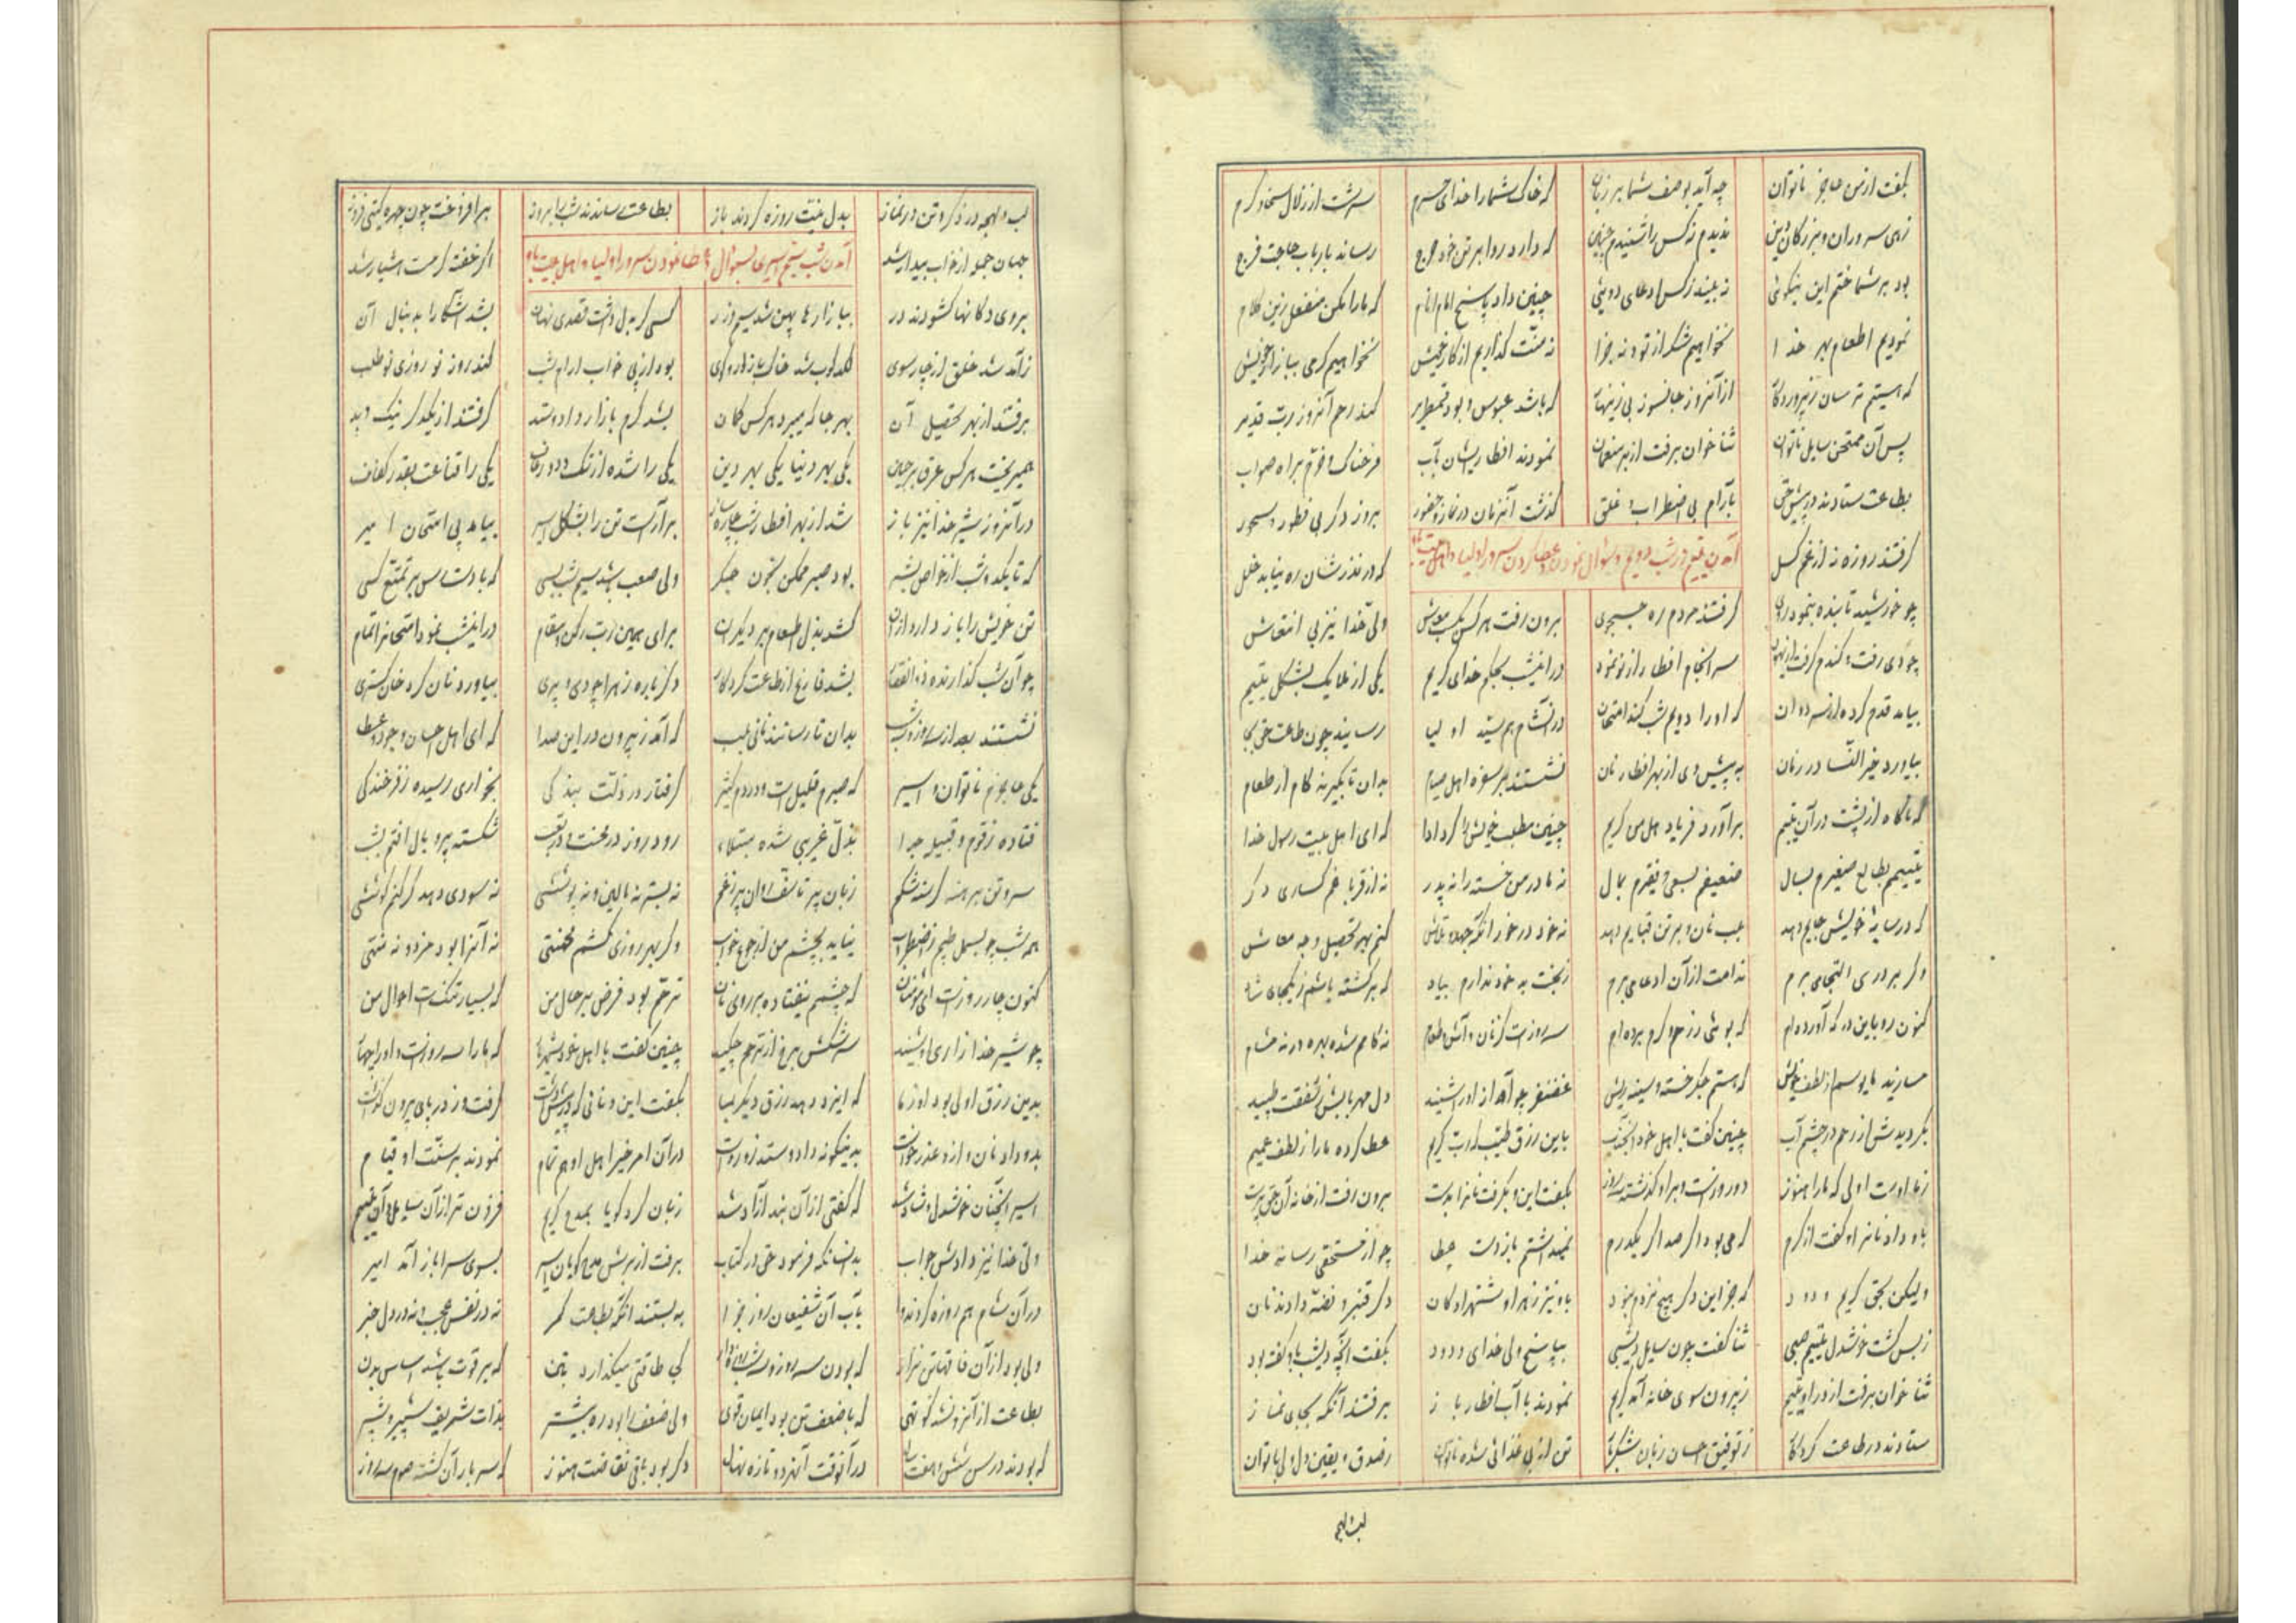 بگفت از من عاجز ناتوان چه آید بوصف شما بر زبان که خاک شما را خدای سرشت از زلال سخا و کرم
زهی سروران و بزرگان دین ندیدم ز کس را شنیدم چنین که دارد روا بر تن خود حرج رساند بارباب حاجت فرج
بود بر شما ختم این نیکوئی نه بیند ز کس ادعای دوئی چنین داد پاسخ امام انام که ما را مکن منفعل زین کلام
نمودیم اطعام بهر خدا نخواهیم شکر از تو و نه جزا نه منت گذاریم از کار خویش نخواهیم گرمی ببازار خویش
که هستیم ترسان ز پروردگار از آنروز جانسوز بی زینهار که باشد عبوس و بود قمطریر کند رحم آنروز رب قدیر
پس آن ممتحن سایل ناتوان ثنا خوان برفت از بر منعمان نمودند افطار ایشان بآب فرحناک و خرم براه صواب
بطاعت ستادند در پیش حق بآرام بی اضطراب و قلق گذشت آنزمان در نماز و حضور بروز دگر بی فطور و سحور
گرفتند روزه ز از غم کسل که در نذرشان ره نیابد خلل
آمدن یتیم در شب دویم و سوال نمودن و عطا کردن سرور اولیا و اهل بیت
چو خورشید تابنده بنمود روی گرفتند مردم ره جستجوی برون رفت هر کس بکسب معاش ولی خدا نیز بی انتعاش
چو دی رفت و گندم گرفت سر انجام افطار از نو نمود در انشب بحکم خدای کریم یکی از ملایک بشکل یتیم
بیامد قدم کرده از سر دوان که او را دویم شب کند امتحان در آنشام هم سید اولیا رسانید چون طاعت حق بجا
بیاورد خیر النسا در زمان به پیش وی از بهر افطار نان نشستند بر سفره اهل صیام بدان تا بگیرند کام از طعام
که ناگاه از پشت در آن یتیم برآورد فریاد اهل من کریم چنین مطلب خویش را کرد ادا که ای اهل بیت رسول خدا
یتیمم بطالع صغیرم بسال ضعیفم بسعی و فقیرم بمال نه مادر من خسته را نه پدر نه از اقربا غم گساری دگر
که در سایه خویش جایم دهد بجیب نان و بر تن قبایم دهد نه خود در خور آنکه جهد و تلاش کنم بهر تحصیل وجه معاش
وگر بر دری التجا می برم ندامت از آن ادعا می برم ز بخت به خود ندارم بیاد که برگشته باشم ز یکجای شاد
کنون رو باین درگه آورده ام که بوئی ز جود و کرم برده ام سه روز است کز نان و آش و طعام نه کامم شده بهره ور نه مشام
مسازید مایوسم از لطف خویش که هستم جگر خسته و سینه ریش غضنفر چو آواز او را شنید دل مهربانش ز شفقت طپید
بگردیدش از رحم در چشم آب چنین گفت با اهل خود آنجناب باین رزق طیب که رب کریم عطا کرده ما را ز لطف عمیم
ز ما اوست اولی که ما را هنوز دو روز است و بر او گذشته سه روز بگفت این و بگرفت نانرا بدست برون رفت از خانه آن حق پرست
باو داد نانرا و گفت از کرم که می بود اگر صد اگر یک درم نمیداشتم باز دست عطا چو از مستحقی رسانه خدا
ولیکن بحق کریم ودود که جز این دگر هیچ نزدم نبود باو نیز زهرا و شهزادگان دگر قنبر و فضه دادند نان
ز بس گشت خوشدل یتیم صبی ثنا گفت چون سایل دیشبی بپاسخ ولی خدای ودود بگفت آنچه دیشب باو گفته بود
ثنا خوان برفت از در او یتیم ز بیرون سوی خانه آمد کریم نمودند با آب افطار باز برفتند آنگه بجای نماز
ستادند در طاعت کردگار ز توفیق احسان زبان شکرگذار تن از بی غذائی شده ناتوان ز صدق و یقین دل ولی با توان
لب و لهجه
لب و لهجه در ذکر و تن در نماز بدل نیت روزه کردند باز بطاعت رساندند شب را بروز برافروخت چون چهره گیتی فروز
جهان جمله از خواب بیدار شد اگر خفته گر مست هشیار شد
آمدن شب سیم اسیر بسوال و عطا نمودن سرور اولیا و اهل بیت
بروی دکانها گشودند در ببازارها پهن شد سیم و زر کسی کو بدل داشت قصدی نهان بشد آشکارا بدنبال آن
ز آمد شد خلق از چارسوی لگدکوب شد خاک بازار و کوی بود از پی خواب آرام شب کند روز نو روزی نو طلب
برفتند از بهر تحصیل آن بهر جا که میبرد هر کس گمان بشد گرم بازار داد و ستد گرفتند از یکدگر نیک و بد
همیریخت هر کس عرق بر جبین یکی بهر دنیا یکی بهر دین یکی را شده از تک و دو روان یکی را قناعت بقدر کفاف
در آنروز شیر خدا نیز باز شد از بهر افطار شب چاره ساز برآراست تن را بشکل اسیر بیامد پی امتحان امیر
که تا یکدو شب از خواص بشر بود صبر ممکن بخون جگر ولی صعب باشد سیم شب بسی که باد دسترس بر تمتع کسی
تن خویش را باز دارد از آن کشد بذل اطعام بر دیگران برای همین رب رکن و مقام در انشب نمود امتحانرا تمام
چو آن شب گذارنده ذوالفقار بشد فارغ از طاعت کردگار دگر باره زهرا چو دی و پری بیاورد نان کرد خوان گستری
نشستند بعد از سه روز و شب بدان تا رسانند نانی بلب که آمد ز بیرون در این صدا که ای اهل احسان و جود و عطا
یکی عاجزم ناتوان و اسیر که صبرم قلیل است و دردم کثیر گرفتار در ذلت بندگی بخواری رسیده ز فرخندگی
فتاده ز قوم و قبیله جدا بذل غریبی شده مبتلا رود روز در محنت و در تعب شکسته پر و بال افتم بشب
سر و تن برهنه گرسنه شکم زبان پر تاسف روان پر ز غم نه بستر نه بالین و نه پوششی نه سودی دهد گر کنم کوششی
همه شب چو بسمل طپم ز اضطراب نیاید بچشم من از جوع خواب وگر بهر روزی کشم محنتی نه آنرا بود مزد و نه منتی
کنون چار روز است ای مومنان که چشمم نیفتاده بر روی نان ترحم بود فرض بر حال من که بسیار تنگ است احوال من
چو شیر خدا زاری او شنید سرشکش برخ از ترحم چکید چنین گفت با اهل خود که ما را سه روز است و او را چهار
بدین رزق اولی بود او ز ما که ایزد دهد رزق دیگر بما بگفت این و نانی که در پیش داشت گرفت و ز در پای بیرون گذاشت
بدو داد نان و ازو عذر خواست بدینگونه داد و ستد زو رواست در آن امر خیر اهل او هم تمام نمودند بر سنت او قیام
اسیر آنچنان خوشدل و شاد شد که گفتی از آن بند آزاد شد زبان کرد گویا بمدح کریم فزون تر از آن سایل و آن یتیم
ولی خدا نیز دادش جواب بدانسانکه فرمود حق در کتاب برفت از برش مدح گویان اسیر بسوی سرا باز آمد امیر
در آن شام هم روزه کردند وا بآب آن شفیعان روز جزا به بستند آنگه بطاعت کمر نه در نفس عجب و نه در دل خبر
ولی بود از آن فاقهاتن نزار که بودن سه روز و سه شب کی طاقتی میگذارد بتن که بر قوت باشد اساس بدن
بطاعت از آنرو نشد کوتهی که با ضعف تن بود ایمان قوی ولی ضعف را بود ره بیشتر بذات شریف شبیر و شبر
که بودند در سن شش و هفت سال در آنوقت آنهر دو تازه نهال دگر بود باقی نقاهت هنوز که سربار آن گشته صوم سه روز